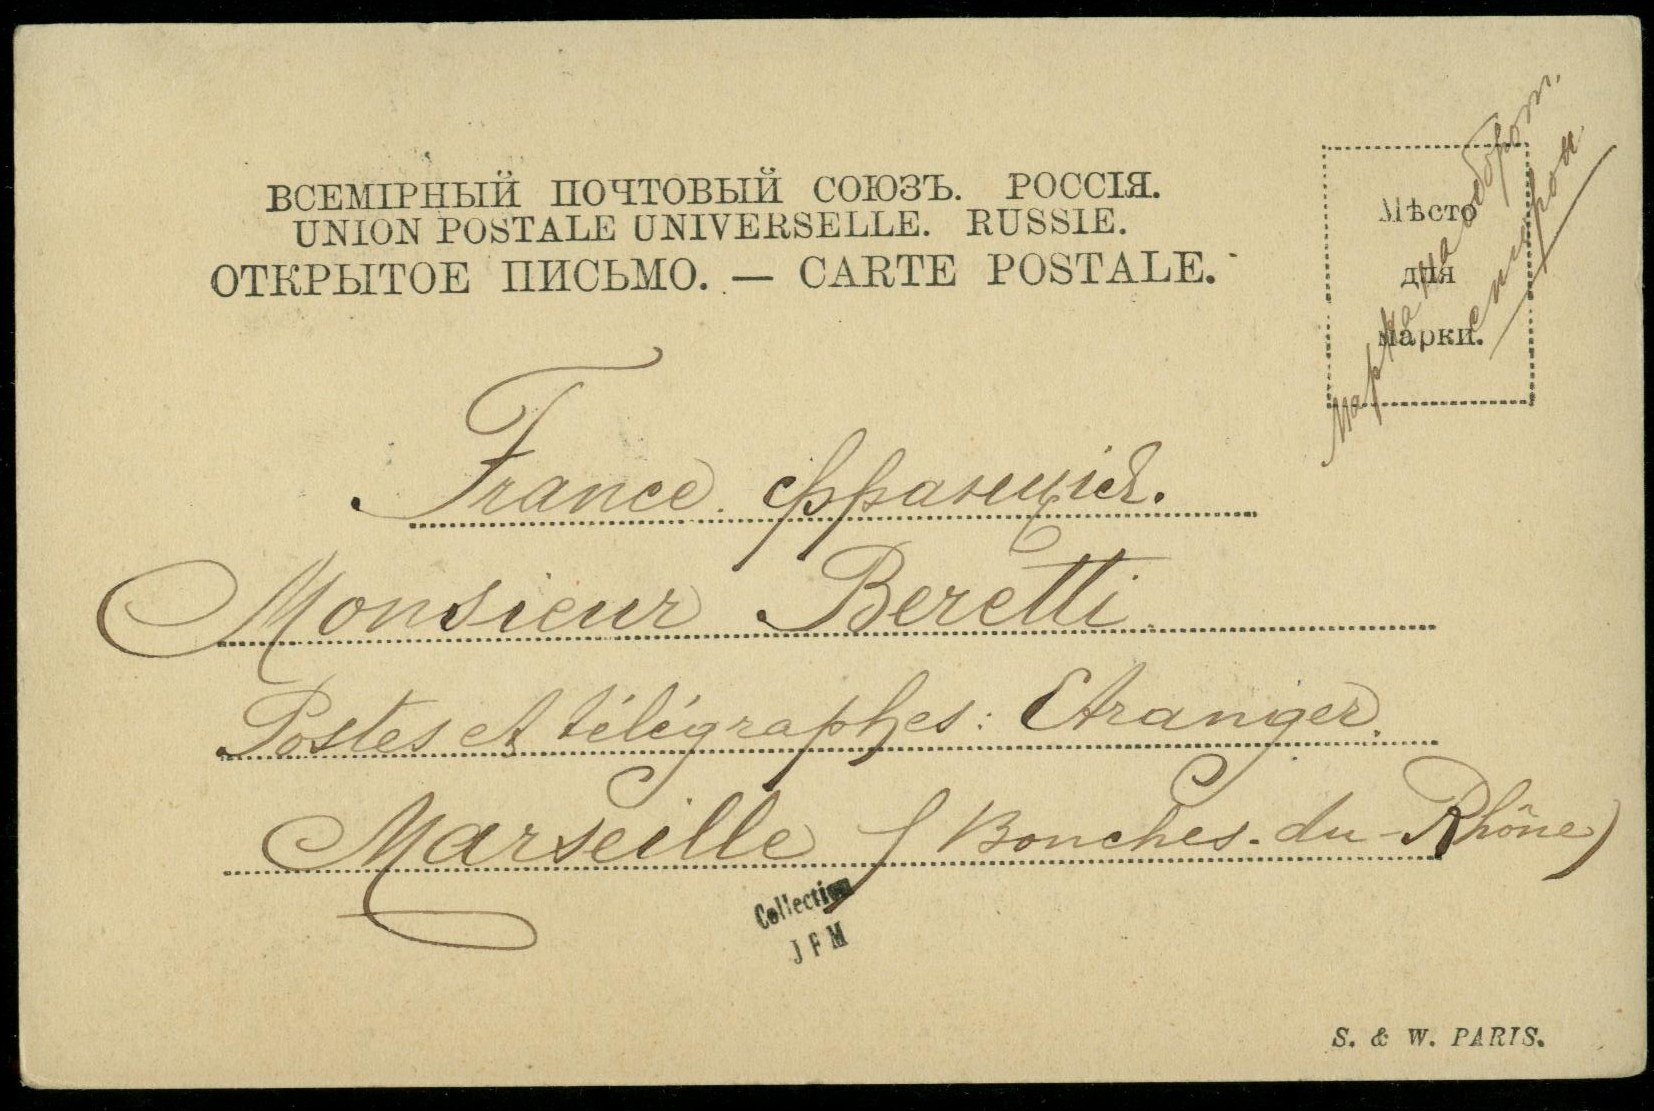 ВСЕМІРНЫЙ ПОЧТОВЫЙ СОЮЗЪ. РОССІЯ.
UNION POSTALE UNIVERSELLE. RUSSIE.
ОТКРЫТОЕ ПИСЬМО. — CARTE POSTALE.
Мѣсто
для
марки.
Марка на оборот.
сторон
France. Франція.
Monsieur Beretti
Postes et télégraphes: Etranger.
Marseille (Bouches-du-Rhône)
Collection
J F M
S. & W. PARIS.